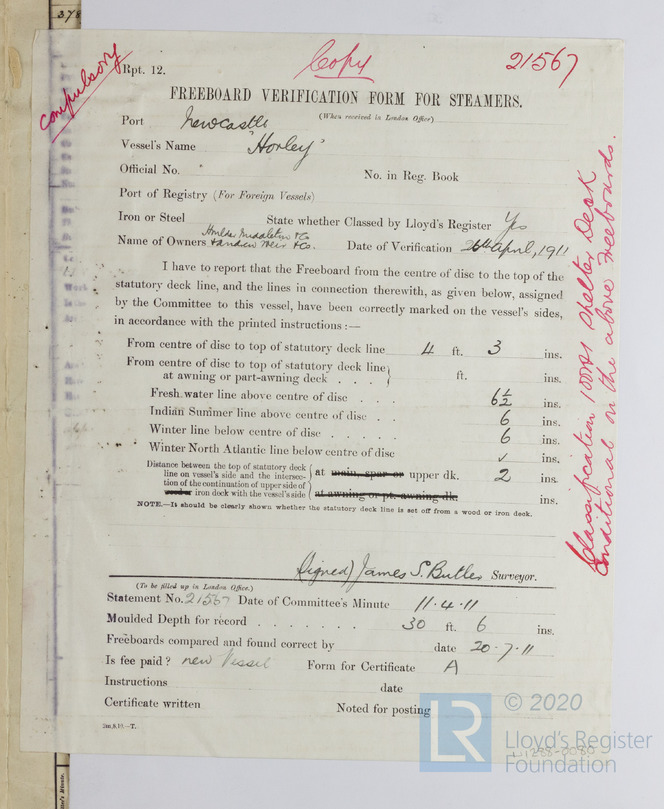 378
compulsory
Rpt. 12.
Copy
21567
FREEBOARD VERIFICATION FORM FOR STEAMERS.
(When received in London Office)
Port Newcastle
Vessel's Name "Horley"
Official No.
No. in Reg. Book
Port of Registry (For Foreign Vessels)
Iron or Steel State whether Classed by Lloyd's Register Yes
Houlder Middleton & Co
Name of Owners & Andrew Weir & Co. Date of Verification 26th April, 1911
I have to report that the Freeboard from the centre of disc to the top of the
statutory deck line, and the lines in connection therewith, as given below, assigned
by the Committee to this vessel, have been correctly marked on the vessel's sides,
in accordance with the printed instructions:—
From centre of disc to top of statutory deck line 4 ft. 3 ins.
From centre of disc to top of statutory deck line
at awning or part-awning deck . . . ft. ins.
Fresh water line above centre of disc . . . 6½ ins.
Indian Summer line above centre of disc . . 6 ins.
Winter line below centre of disc . . . . . . 6 ins.
Winter North Atlantic line below centre of disc ✓ ins.
Distance between the top of statutory deck
line on vessel's side and the intersec-
tion of the continuation of upper side of
wood or iron deck with the vessel's side
at main, spar or upper dk. 2 ins.
at awning or pt. awning dk. ins.
NOTE.—It should be clearly shown whether the statutory deck line is set off from a wood or iron deck.
(Signed) James S. Butler Surveyor.
(To be filled up in London Office.)
Statement No. 21567 Date of Committee's Minute 11.4.11
Moulded Depth for record . . . . . . . 30 ft. 6 ins.
Freeboards compared and found correct by date 20.7.11
Is fee paid? new Vessel Form for Certificate A
Instructions date
Certificate written Noted for posting
2m,8,10.—T.
Classification 100A1 Shelter Deck
Conditional on the above Freeboards.
© 2020
LR
Lloyd's Register
Foundation